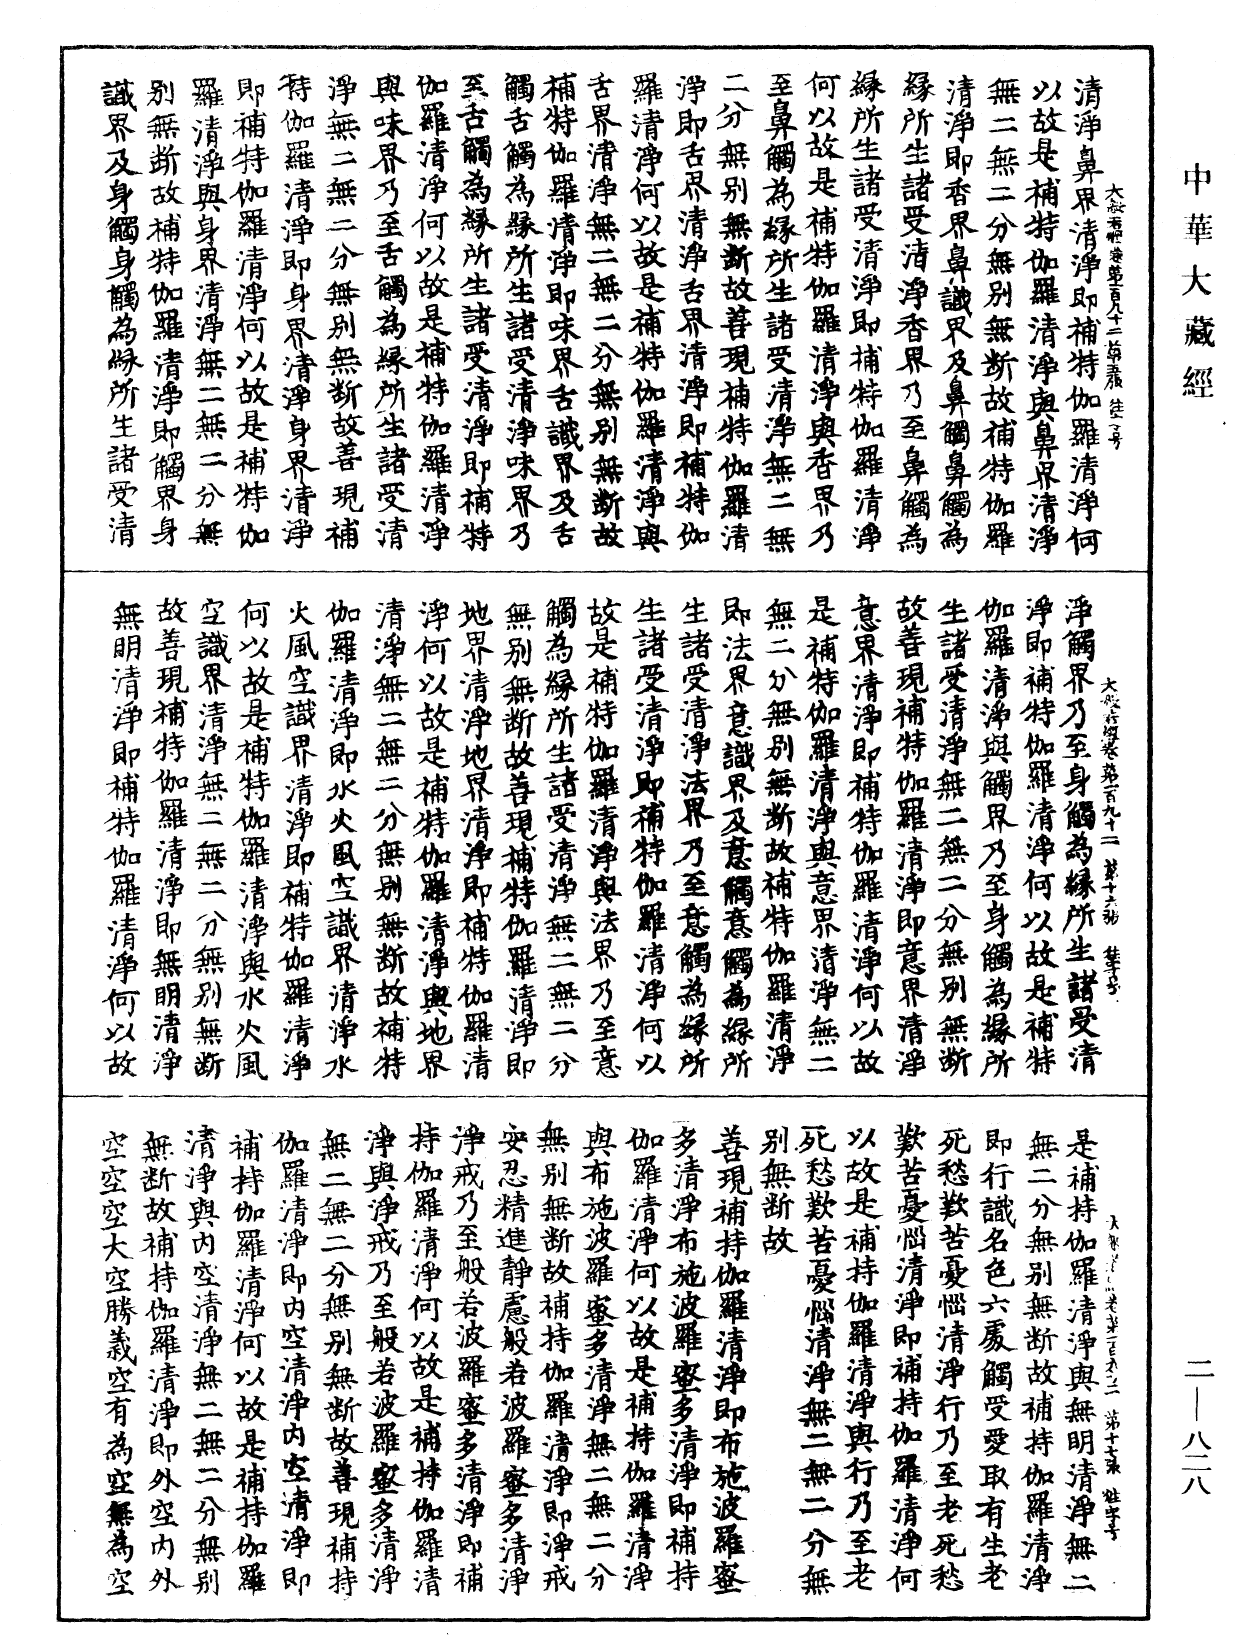 中華大藏經
清淨鼻界清淨即補特伽羅清淨何
以故是補特伽羅清淨與鼻界清淨
無二無二分無別無斷故補特伽羅
清淨即香界鼻識界及鼻觸鼻觸為
緣所生諸受清淨香界乃至鼻觸為
緣所生諸受清淨即補特伽羅清淨
何以故是補特伽羅清淨與香界乃
至鼻觸為緣所生諸受清淨無二無
二分無別無斷故善現補特伽羅清
淨即舌界清淨舌界清淨即補特伽
羅清淨何以故是補特伽羅清淨與
舌界清淨無二無二分無別無斷故
補特伽羅清淨即味界舌識界及舌
觸舌觸為緣所生諸受清淨味界乃
至舌觸為緣所生諸受清淨即補特
伽羅清淨何以故是補特伽羅清淨
與味界乃至舌觸為緣所生諸受清
淨無二無二分無別無斷故善現補
特伽羅清淨即身界清淨身界清淨
即補特伽羅清淨何以故是補特伽
羅清淨與身界清淨無二無二分無
別無斷故補特伽羅清淨即觸界身
識界及身觸身觸為緣所生諸受清
大般若經卷第一百九十二 第十六張
淨觸界乃至身觸為緣所生諸受清
淨即補特伽羅清淨何以故是補特
伽羅清淨與觸界乃至身觸為緣所
生諸受清淨無二無二分無別無斷
故善現補特伽羅清淨即意界清淨
意界清淨即補特伽羅清淨何以故
是補特伽羅清淨與意界清淨無二
無二分無別無斷故補特伽羅清淨
即法界意識界及意觸意觸為緣所
生諸受清淨法界乃至意觸為緣所
生諸受清淨即補特伽羅清淨何以
故是補特伽羅清淨與法界乃至意
觸為緣所生諸受清淨無二無二分
無別無斷故善現補特伽羅清淨即
地界清淨地界清淨即補特伽羅清
淨何以故是補特伽羅清淨與地界
清淨無二無二分無別無斷故補特
伽羅清淨即水火風空識界清淨水
火風空識界清淨即補特伽羅清淨
何以故是補特伽羅清淨與水火風
空識界清淨無二無二分無別無斷
故善現補特伽羅清淨即無明清淨
無明清淨即補特伽羅清淨何以故
是補持伽羅清淨與無明清淨無二
無二分無別無斷故補持伽羅清淨
即行識名色六處觸受愛取有生老
死愁歎苦憂惱清淨行乃至老死愁
歎苦憂惱清淨即補持伽羅清淨何
以故是補持伽羅清淨與行乃至老
死愁歎苦憂惱清淨無二無二分無
別無斷故
善現補持伽羅清淨即布施波羅蜜
多清淨布施波羅蜜多清淨即補持
伽羅清淨何以故是補持伽羅清淨
與布施波羅蜜多清淨無二無二分
無別無斷故補持伽羅清淨即淨戒
安忍精進靜慮般若波羅蜜多清淨
淨戒乃至般若波羅蜜多清淨即補
持伽羅清淨何以故是補持伽羅清
淨與淨戒乃至般若波羅蜜多清淨
無二無二分無別無斷故善現補持
伽羅清淨即內空清淨內空清淨即
補持伽羅清淨何以故是補持伽羅
清淨與內空清淨無二無二分無別
無斷故補持伽羅清淨即外空內外
空空空大空勝義空有為空無為空
二—八二八